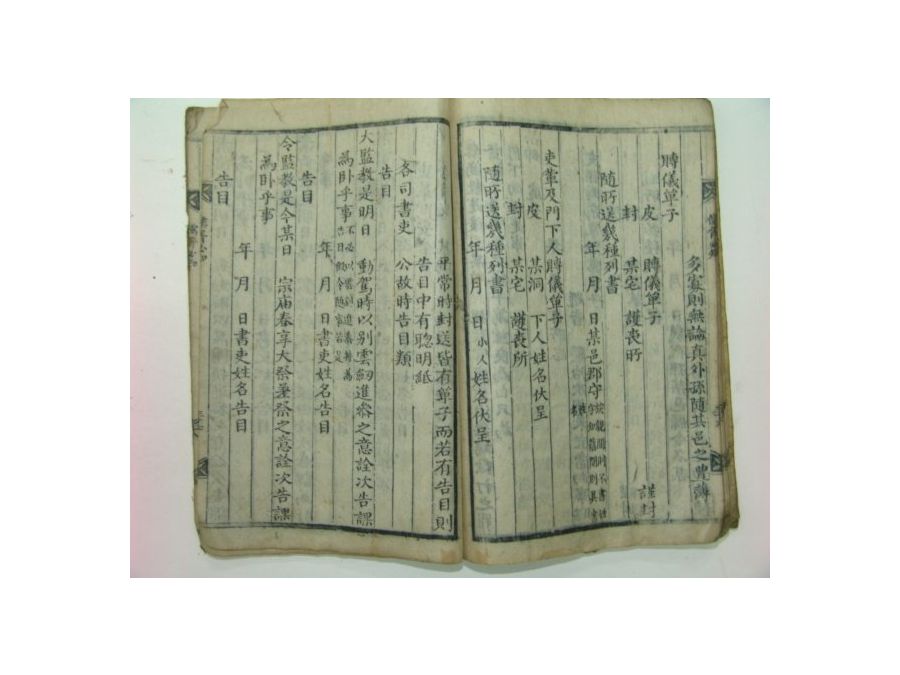 多寡則無論真外孫隨其邑之豊薄
賻儀單子
皮 賻儀單子 謹封
封 某宅 護喪所
隨所送幾種列書
年 月 日某邑郡守
吏輩及門下人賻儀單子
皮 某洞 下人姓名伏呈
封 某宅 護喪所
隨所送幾種列書
年 月 日小人姓名伏呈
平常時封送皆有單子而若有告目則
告目中有聡明紙
各司書吏 公故時告目類
告目
大監教是明日 動駕時以別雲劒進參之意詮次告課
為卧乎事
年 月 日書吏姓名告目
告目
令監教是今某日 宗庙春享大祭兼祭之意詮次告課
為卧乎事
年 月 日書吏姓名告目
告目